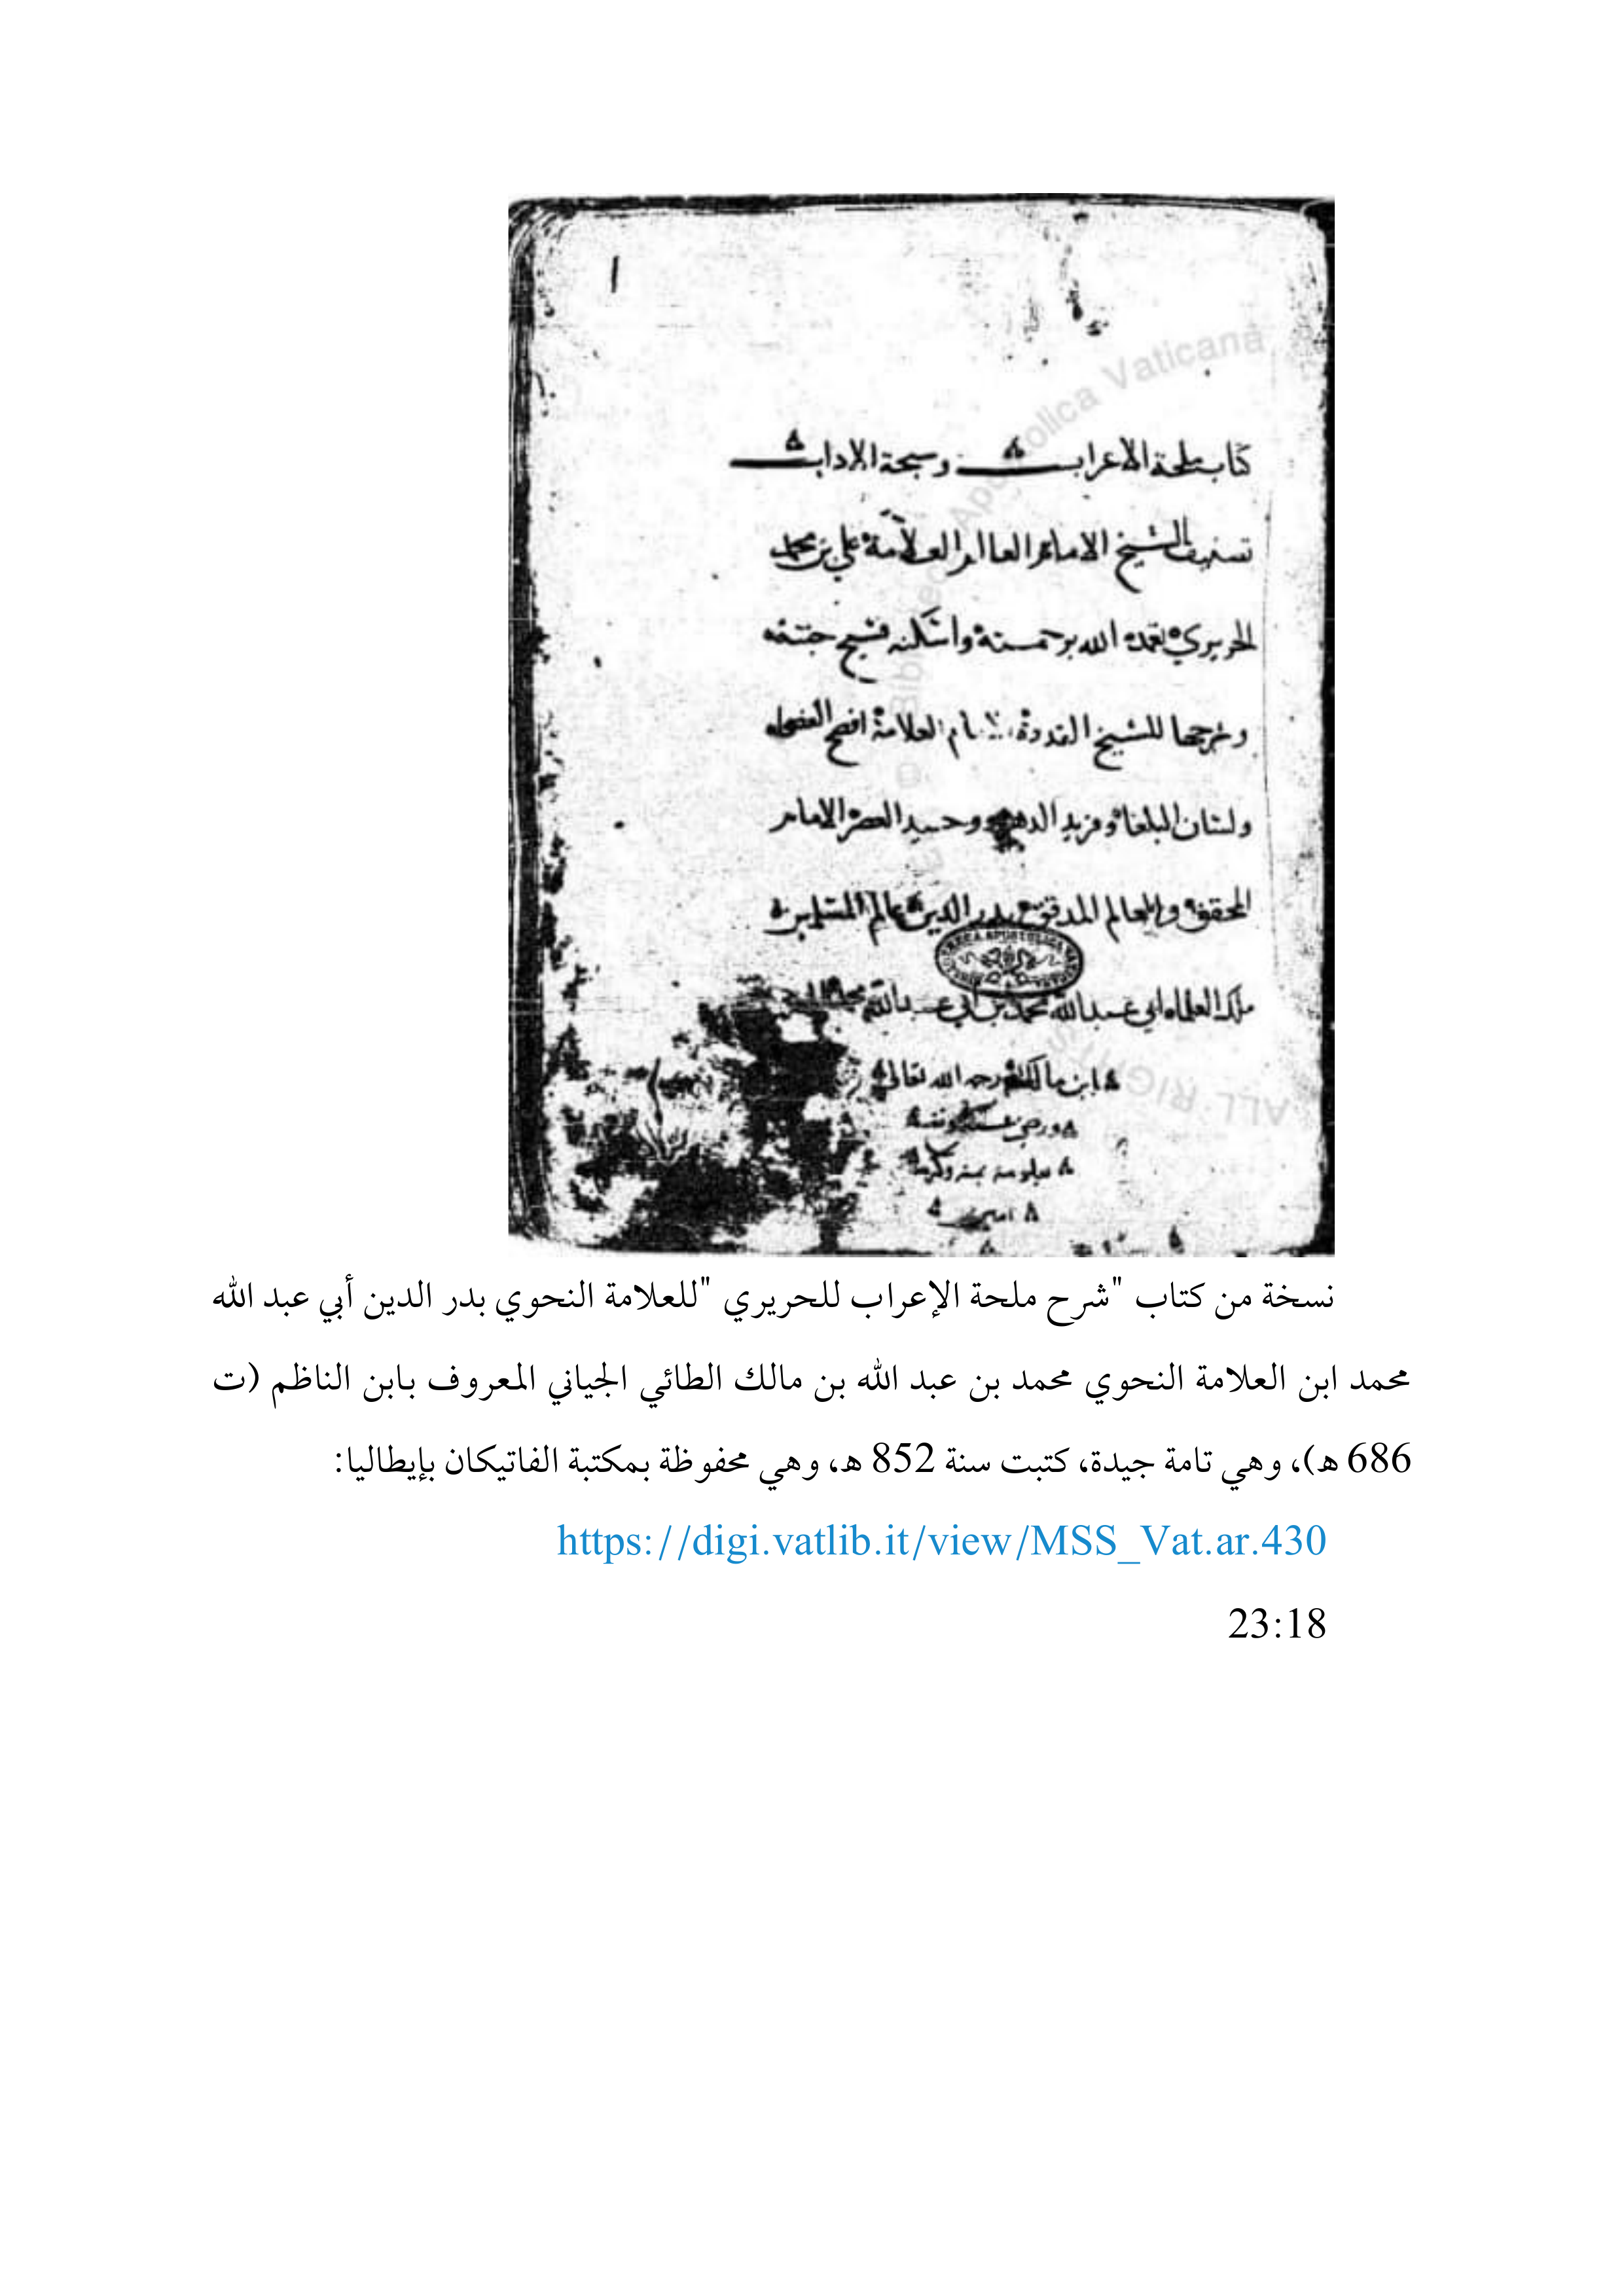 كتاب ملحة الاعراب وسبحة الاداب
تصنيف الشيخ الامام العالم العلامة علي بن محمد
الحريري تغمده الله برحمته واسكنه فسيح جنته
وشرحها للشيخ القدوة العلامة افصح الفضلا
ولسان البلغا وفريد الدهر ووحيد العصر الامام
المحقق والعالم المدقق بدر الدين عالم المسلمين
ملك العلماء ابي عبد الله محمد بن ابي عبد الله محمد
ابن مالك رحمه الله تعالى
ورضي عنه
بمنه وكرمه
امين
نسخة من كتاب "شرح ملحة الإعراب للحريري "للعلامة النحوي بدر الدين أبي عبد الله
محمد ابن العلامة النحوي محمد بن عبد الله بن مالك الطائي الجياني المعروف بابن الناظم (ت
686 ه)، وهي تامة جيدة، كتبت سنة 852 ه، وهي محفوظة بمكتبة الفاتيكان بإيطاليا:
https://digi.vatlib.it/view/MSS_Vat.ar.430
23:18